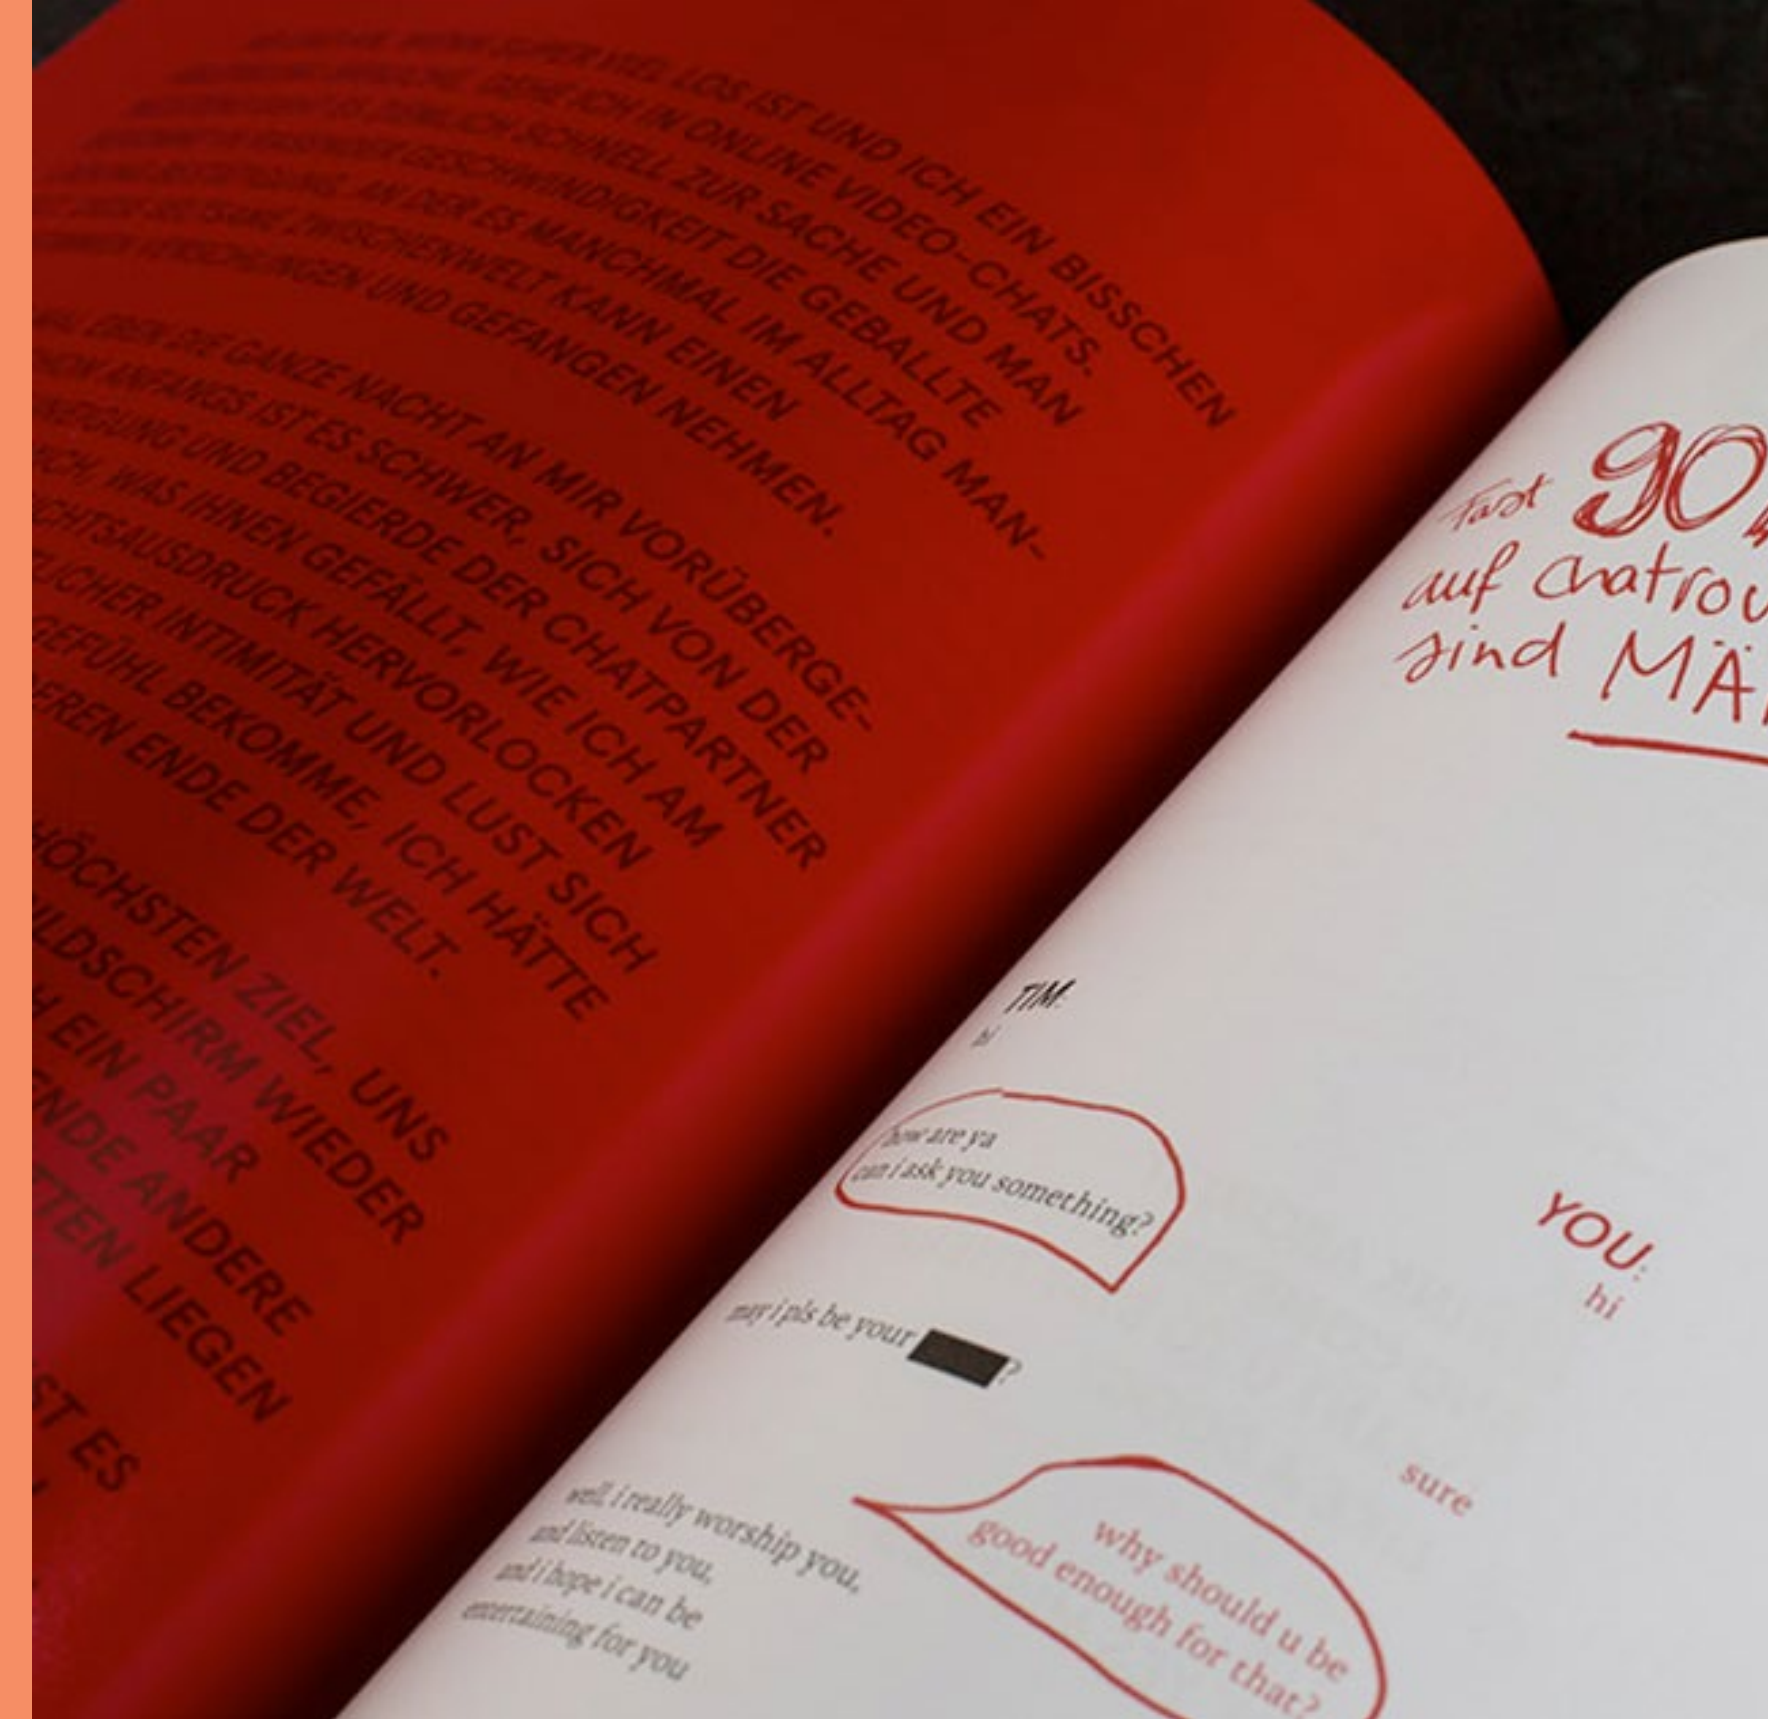 SUPER VIEL LOS IST UND ICH EIN BISSCHEN
GEHE ICH IN ONLINE VIDEO-CHATS.
ES ZIEMLICH SCHNELL ZUR SACHE UND MAN
GESCHWINDIGKEIT DIE GEBALLTE
AN DER ES MANCHMAL IM ALLTAG MAN-
ZWISCHENWELT KANN EINEN
VERSCHLINGEN UND GEFANGEN NEHMEN.
EBEN DIE GANZE NACHT AN MIR VORÜBERGE-
ANFANGS IST ES SCHWER, SICH VON DER
UND BEGIERDE DER CHATPARTNER
ICH, WAS IHNEN GEFÄLLT, WIE ICH AM
CHTSAUSDRUCK HERVORLOCKEN
TLICHER INTIMITÄT UND LUST SICH
GEFÜHL BEKOMME, ICH HÄTTE
EREN ENDE DER WELT.
HÖCHSTEN ZIEL, UNS
ILDSCHIRM WIEDER
H EIN PAAR
ENDE ANDERE
TTEN LIEGEN
ST ES
Fast 90
auf chatrou
sind MÄ
TIM:
hi
how are ya
can i ask you something?
YOU:
hi
may i pls be your ?
sure
well, i really worship you,
and listen to you,
and i hope i can be
entertaining for you
why should u be
good enough for that?